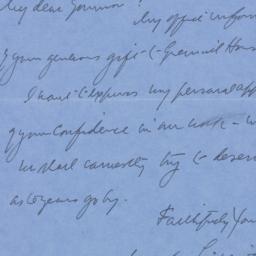 My dear Governor:
My office inform
of your generous gift to Greenwich Hous
I want to express my personal app
of your confidence in our work - w
we shall earnestly try to deser
as the years go by.
Faithfully You